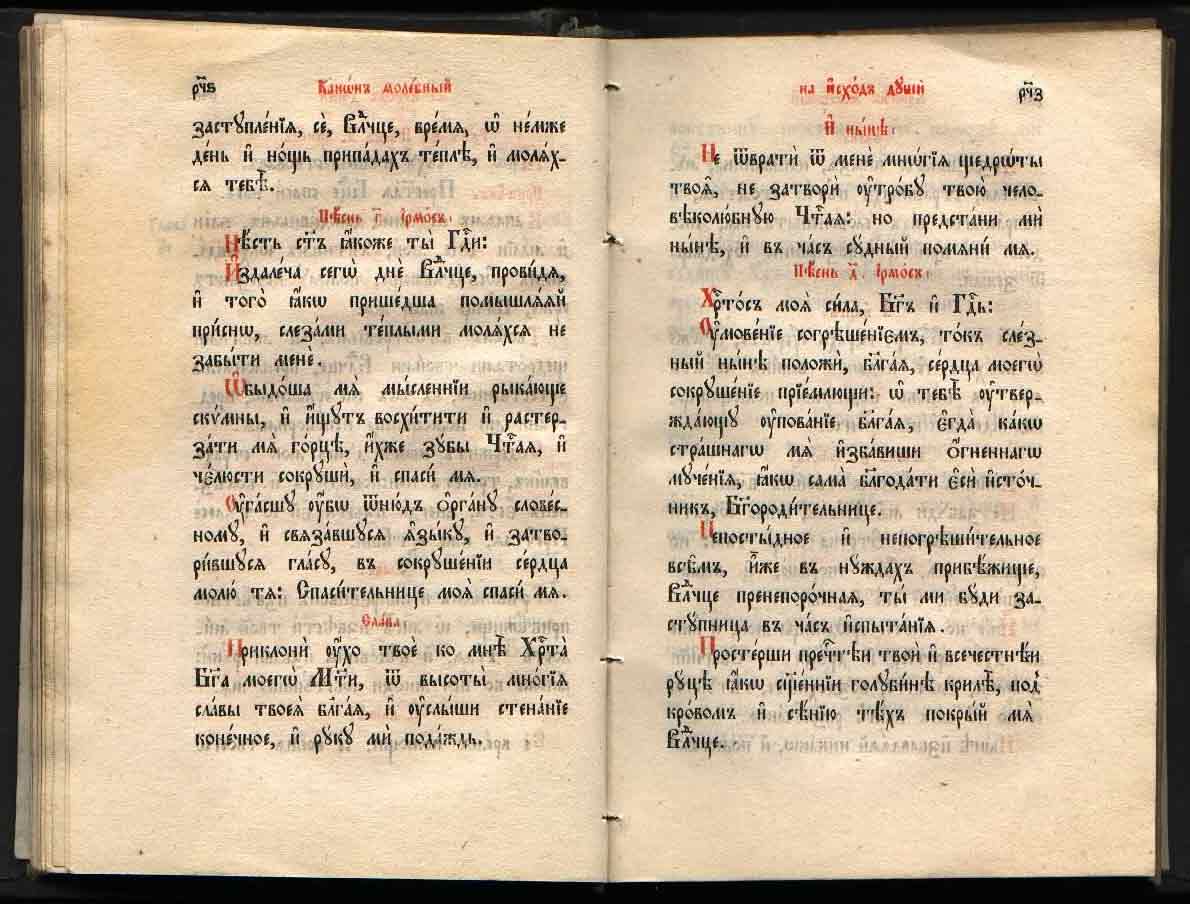 рч҃ѕ
Канѡ́нъ моле́бный
застꙋпле́нїѧ, сѐ, Влⷣчце, вре́мѧ, ѡ҆ не́мже
де́нь и҆ но́щь припа́дахъ те́плѣ, и҆ молѧ́х-
сѧ тебѣ̀.
Пѣ́снь г҃. І҆рмо́съ.
Нѣ́сть ст҃ъ ꙗ҆́коже ты̀ Гдⷭ҇и:
И҆здале́ча сегѡ̀ днѐ Влⷣчце, прови́дѧ,
и҆ того̀ ꙗ҆́кѡ прише́дша помышлѧ́ѧй
при́снѡ, слеза́ми те́плыми молѧ́хсѧ не
забы́ти менѐ.
Ѡ҆быдо́ша мѧ̀ мы́сленнїи рыка́юще
ски́мны, и҆ и҆́щꙋтъ восхи́тити и҆ растер-
за́ти мѧ̀ го́рцѣ, и҆́хже зꙋ́бы Чтⷭ҇аѧ, и҆
че́люсти сокрꙋшѝ, и҆ спаси́ мѧ.
Оу҆га́сшꙋ оу҆́бѡ ѿню́дъ ѻ҆рга́нꙋ слове́с-
номꙋ, и҆ свѧза́вшꙋсѧ ѧ҆зы́кꙋ, и҆ затво-
ри́вшꙋсѧ гла́сꙋ, въ сокрꙋше́нїи се́рдца
молю̀ тѧ: Спаси́тельнице моѧ̀ спаси́ мѧ.
Сла́ва
Приклонѝ оу҆́хо твоѐ ко мнѣ̀ Хрⷭ҇та̀
Бг҃а моегѡ̀ Мт҃и, ѿ высоты̀ мно́гїѧ
сла́вы твоеѧ̀ бл҃га́ѧ, и҆ оу҆слы́ши стена́нїе
коне́чное, и҆ рꙋ́кꙋ мѝ пода́ждь.
на и҆схо́дъ дꙋшѝ
рч҃з
И҆ ны́нѣ:
Не ѿвратѝ ѿ менѐ мнѡ́гїѧ щедрѡ́ты
твоѧ̑, не затворѝ оу҆тро́бꙋ твою̀ чело-
вѣколю́бнꙋю Чтⷭ҇аѧ: но предста́ни мѝ
ны́нѣ, и҆ въ ча́съ сꙋ́дный помѧнѝ мѧ.
Пѣ́снь д҃. І҆рмо́съ:
Хрⷭ҇то́съ моѧ̀ си́ла, Бг҃ъ и҆ Гдⷭ҇ь:
Оу҆мове́нїе согрѣше́нїємъ, то́къ сле́з-
ный ны́нѣ положѝ, бл҃га́ѧ, се́рдца моегѡ̀
сокрꙋше́нїе прїе́млющи: ѡ҆ тебѣ̀ оу҆твер-
жда́ющꙋ оу҆пова́нїе бл҃га́ѧ, є҆гда̀ ка́кѡ
стра́шнагѡ мѧ̀ и҆зба́виши ѻ҆́гненнагѡ
мꙋче́нїѧ, ꙗ҆́кѡ сама̀ бл҃года́ти є҆сѝ и҆сто́ч-
никъ, Бг҃ороди́тельнице.
Непосты́дное и҆ непогрѣши́тельное
всѣ̑мъ, и҆̀же въ нꙋ́ждахъ прибѣ́жище,
Влⷣчце пренепоро́чнаѧ, ты́ ми бꙋ́ди за-
стꙋ́пница въ ча́съ и҆спыта́нїѧ.
Просте́рши пречⷭ҇тѣи твоѝ и҆ всечестнѣ́и
рꙋ́цѣ ꙗ҆́кѡ сщ҃е́ннїи голꙋби́нѣ крилѣ̀, под̾
кро́вомъ и҆ сѣ́нїю тѣ́хъ покры́й мѧ̀
Влⷣчце.